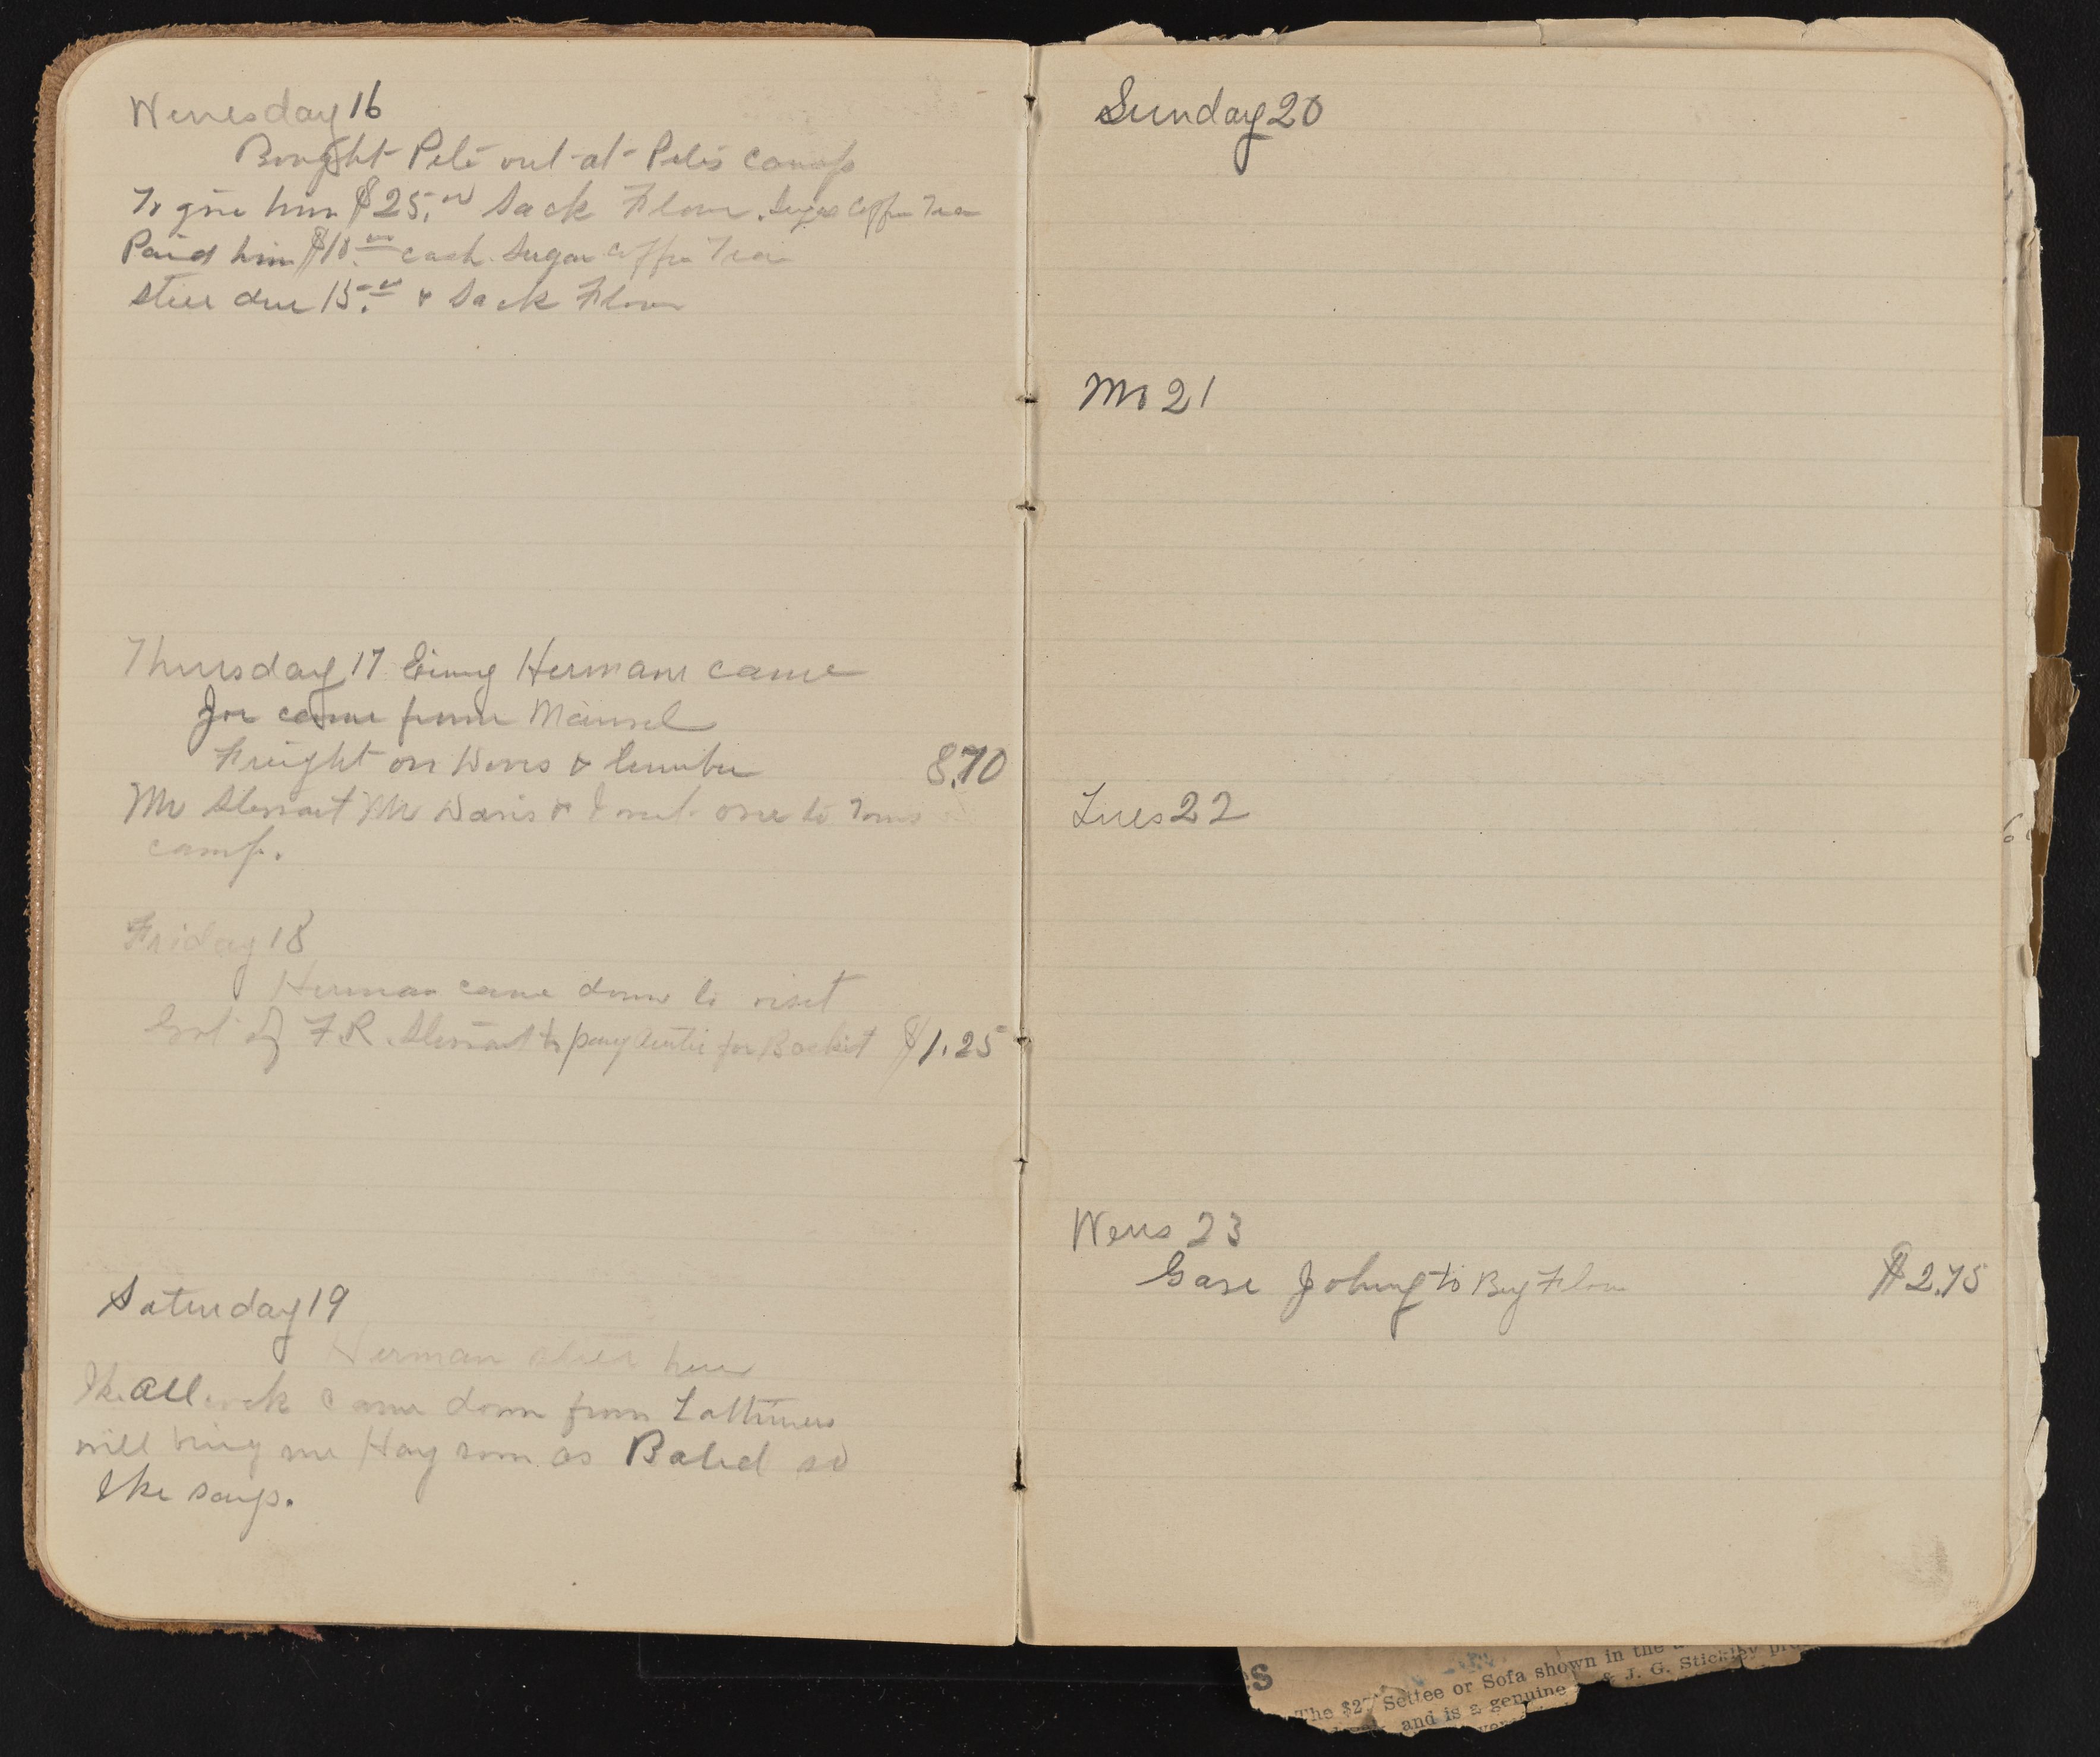 Wenesday 16
Bought Pete out at Petes camp
To give him $25.00 Sack Flour. Sugar Coffee Tea
Paid him $10.00 cash. Sugar Coffee Tea
still due 15.00 & Sack Flour
Thursday 17 Hermans came
Joe came from Mansel
Freight on Dores & Lumber 8.70
Mr Stewart Mr Davis & I went over to Toms
camp.
Friday 18
Herman came down to viset
Got of F.R. Stewart to pay for Baskit $1.25
Saturday 19
Herman still here
Ike Allcock came down from Lattimers
will bring me Hay soon as Baled so
Ike says.
Sunday 20
Mo 21
Tues 22
Wens 23
Gave Johny to Buy Flour $2.75
s
The $27 Settee or Sofa shown in the
& J. G. Stickley
and is a genuine